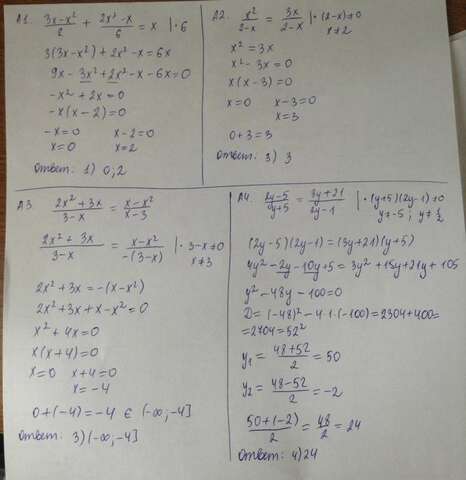 А1. (3x-x²)/2 + (2x²-x)/6 = x |·6
3(3x-x²)+2x²-x=6x
9x-3x²+2x²-x-6x=0
-x²+2x=0
-x(x-2)=0
-x=0 x-2=0
x=0 x=2
Ответ: 1) 0,2
А2. x²/(2-x) = 3x/(2-x) |·(2-x)≠0
x≠2
x²=3x
x²-3x=0
x(x-3)=0
x=0 x-3=0
x=3
0+3=3
Ответ: 3) 3
А3 (2x²+3x)/(3-x) = (x-x²)/(x-3)
(2x²+3x)/(3-x) = (x-x²)/(-(3-x)) |·3-x≠0
x≠3
2x²+3x=-(x-x²)
2x²+3x+x-x²=0
x²+4x=0
x(x+4)=0
x=0 x+4=0
x=-4
0+(-4)=-4 ∈ (-∞,-4]
Ответ: 3) (-∞,-4]
А4. (2y-5)/(y+5) = (3y+21)/(2y-1) |·(y+5)(2y-1)≠0
y≠-5; y≠1/2
(2y-5)(2y-1)=(3y+21)(y+5)
4y²-2y-10y+5=3y²+15y+21y+105
y²-48y-100=0
D=(-48)²-4·1·(-100)=2304+400=
=2704=52²
y₁=(48+52)/2=50
y₂=(48-52)/2=-2
(50+(-2))/2=48/2=24
Ответ: 4) 24